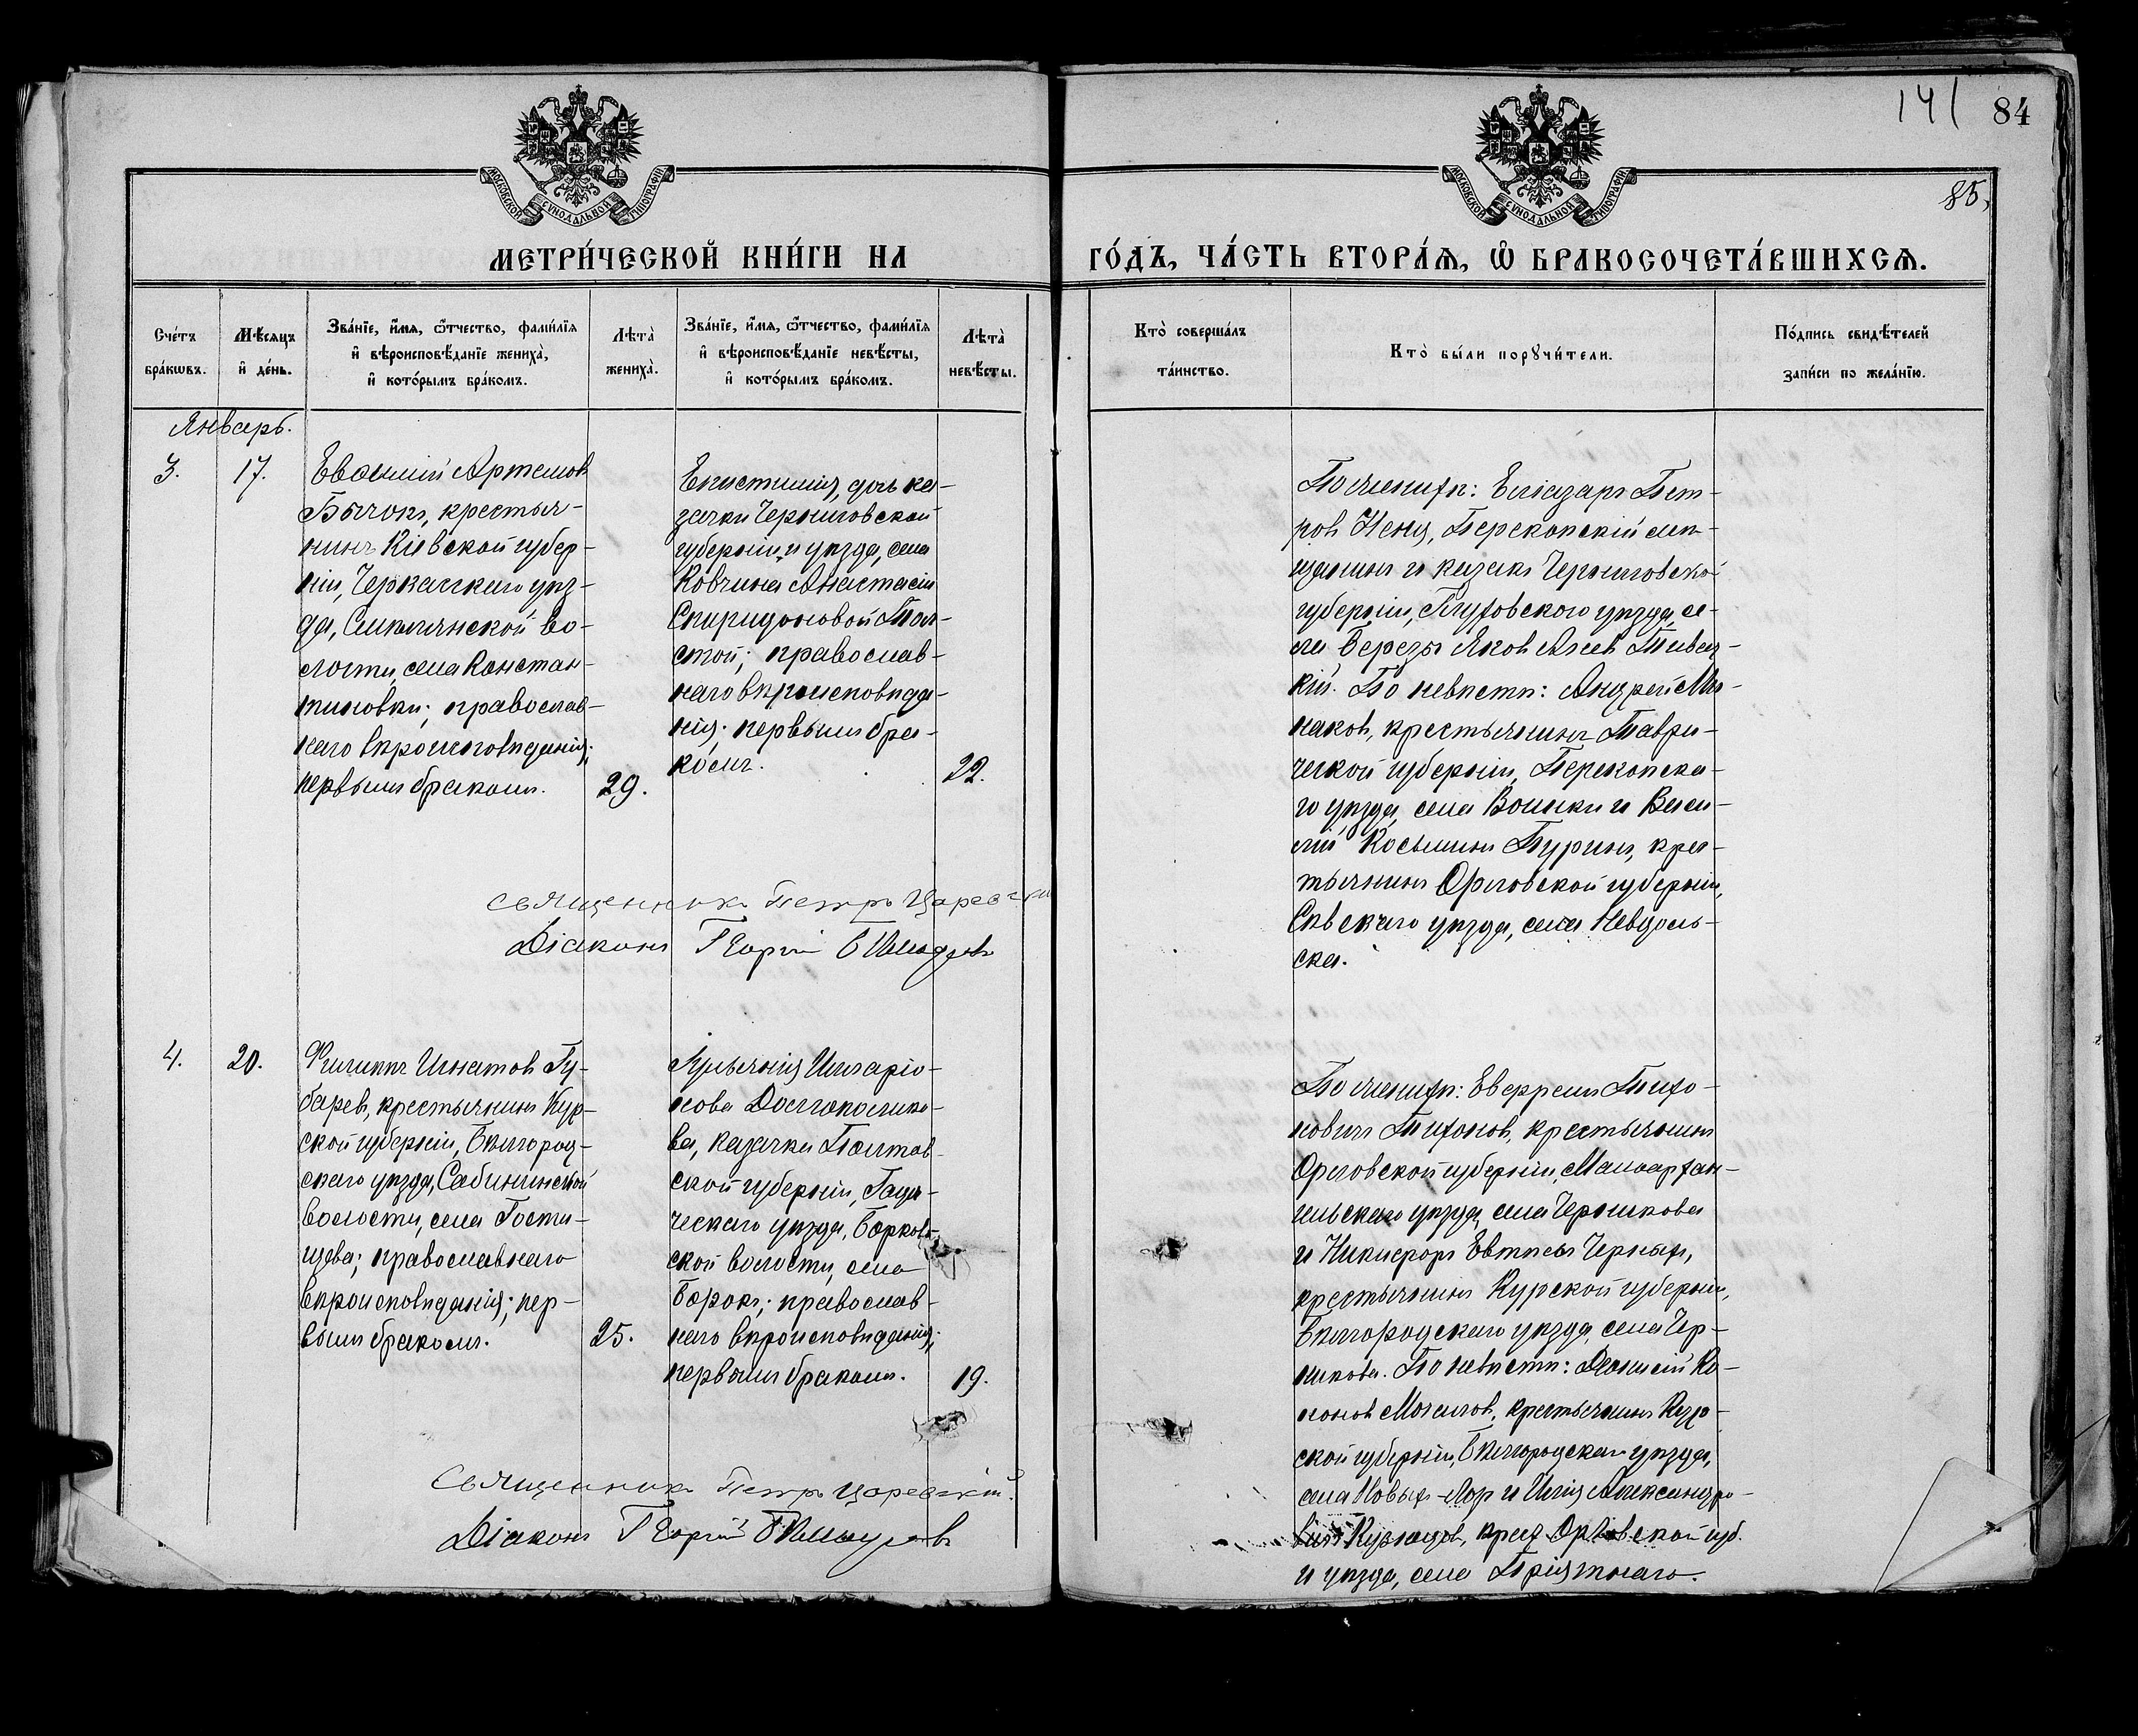 141 84
85,
МОСКОВСКОЙ СѴНОДАЛЬНОЙ ТИПОГРАФІИ
МОСКОВСКОЙ СѴНОДАЛЬНОЙ ТИПОГРАФІИ
МЕТРИ́ЧЕСКОЙ КНИ́ГИ НА
ГО́ДЪ, ЧА́СТЬ ВТОРА́Ѧ, Ѽ БРАКОСОЧЕТА́ВШИХСѦ.
Сче́тъ
бра́кѡвъ.
Мѣ́сяцъ
и҆ де́нь.
Зва́нїе, и҆́мѧ, ѻ҆́тчество, фами́лїѧ
и҆ вѣроисповѣ́данїе жениха̀,
и҆ кото́рымъ бра́комъ.
Лѣта̀
жениха̀.
Зва́нїе, и҆́мѧ, ѻ҆́тчество, фами́лїѧ
и҆ вѣроисповѣ́данїе невѣ́сты,
и҆ кото́рымъ бра́комъ.
Лѣта̀
невѣ́сты.
Кто̀ соверша́лъ
та́инство.
Кто̀ бы́ли порꙋчи́тели.
По́дпись свидѣ́телей
за́писи по жела́нїю.
Январь.
3.
17.
Артемовъ
Бычокъ, крестья-
нинъ Кіевской губер-
ніи, Черкасскаго уѣз-
да, Смѣлянской во-
лости, села Констан-
тиновки; православ-
наго вѣроисповѣданія;
первымъ бракомъ.
29.
Епистимія, дочь ка-
зачки Черниговской
губерніи и уѣзда, села
Ковчина Анастасіи
Спиридоновой Тол-
стой; православ-
наго вѣроисповѣда-
нія; первымъ бра-
комъ.
22.
По женихѣ: Елеазаръ Пет-
ровъ Перекопскій мѣ-
щанинъ и казакъ Черниговской
губерніи, Глуховскаго уѣзда, се-
ла Березы Яковъ
кій. По невѣстѣ: Андрей Ми-
наковъ, крестьянинъ Таври-
ческой губерніи, Перекопска-
го уѣзда, села Воинки и Васи-
лій Косьминъ крес-
тьянинъ Орловской губерніи,
Сѣвскаго уѣзда, села Невдоль-
ска.
Священникъ Петръ Царевскій
Діаконъ Георгій
4.
20.
Филиппъ Игнатовъ Гу-
баревъ, крестьянинъ Кур-
ской губерніи, Бѣлгород-
скаго уѣзда, Сабынинской
волости, села Гости-
щева; православнаго
вѣроисповѣданія; пер-
вымъ бракомъ.
25.
Иларіо-
нова Долгополико-
ва, казачка Полтав-
ской губерніи, Гадя-
ческаго уѣзда, Борков-
ской волости, села
Борокъ; православ-
наго вѣроисповѣданія;
первымъ бракомъ.
19.
По женихѣ: Евфремъ Тихо-
новичъ Тихоновъ, крестьянинъ
Орловской губерніи, Малоархан-
гельскаго уѣзда, села
и Никифоръ Евтѣевъ
крестьянинъ Курской губерніи,
Бѣлгородскаго уѣзда, села Чер-
никова. По невѣстѣ: Діонисій Ко-
ноновъ крестьянинъ Кур-
ской губерніи, Бѣлгородскаго уѣзда,
села Новыхъ-Лоръ и Илія Александро-
вичъ крест. Орловской губ.
и уѣзда, села Пріятнаго.
Священникъ Петръ Царевскій.
Діаконъ Георгій